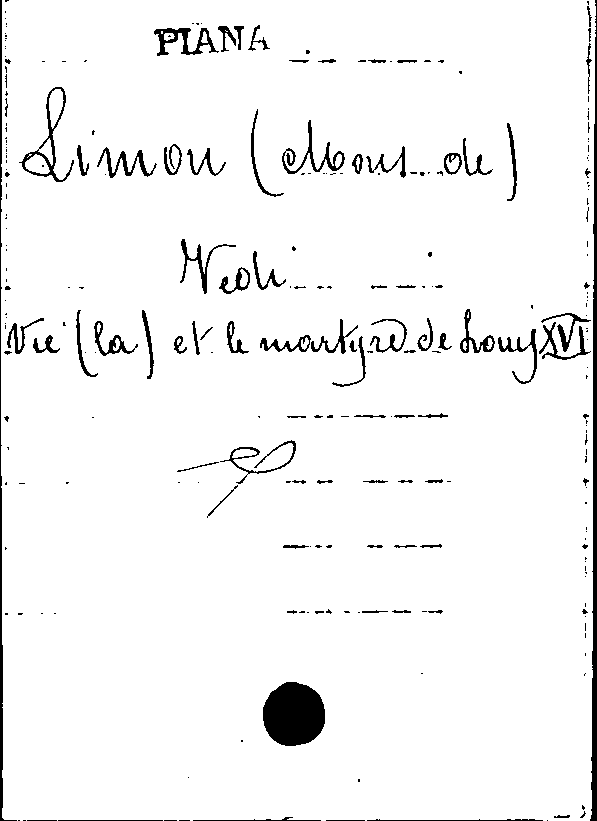 PIANA
Limon (Mons. de)
Vedi
Vie (la) et le martyre de Louis XVI